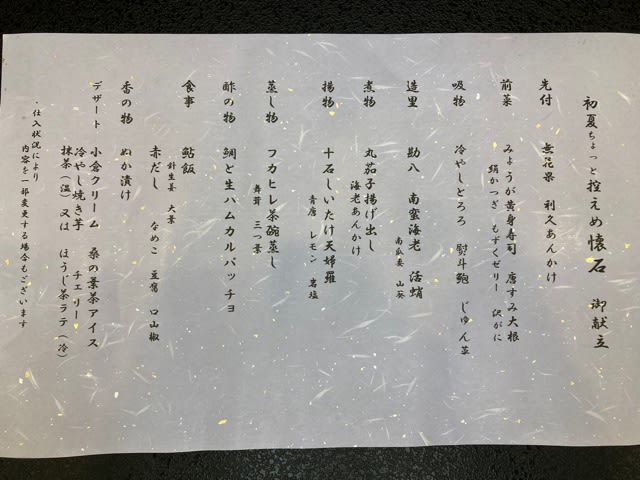 初夏ちょっと控えめ懐石 御献立
先付 無花果 利久あんかけ
前菜 みょうが黄身寿司 唐すみ大根
絹かつぎ もずくゼリー 沢がに
吸物 冷やしとろろ 熨斗鮑 じゅん菜
造里 勘八 南蛮海老 活蛸
山葵
煮物 丸茄子揚げ出し
海老あんかけ
揚物 十石しいたけ天婦羅
青唐 レモン 岩塩
蒸し物 フカヒレ茶碗蒸し
舞茸 三つ葉
酢の物 鯛と生ハムカルパッチョ
食事 鮎飯
針生姜 大葉
赤だし なめこ 豆腐 口山椒
香の物 ぬか漬け
デザート 小倉クリーム 桑の葉茶アイス
冷やし焼き芋 チェリー
抹茶(温)又は ほうじ茶ラテ(冷)
・仕入状況により
内容を一部変更する場合もございます